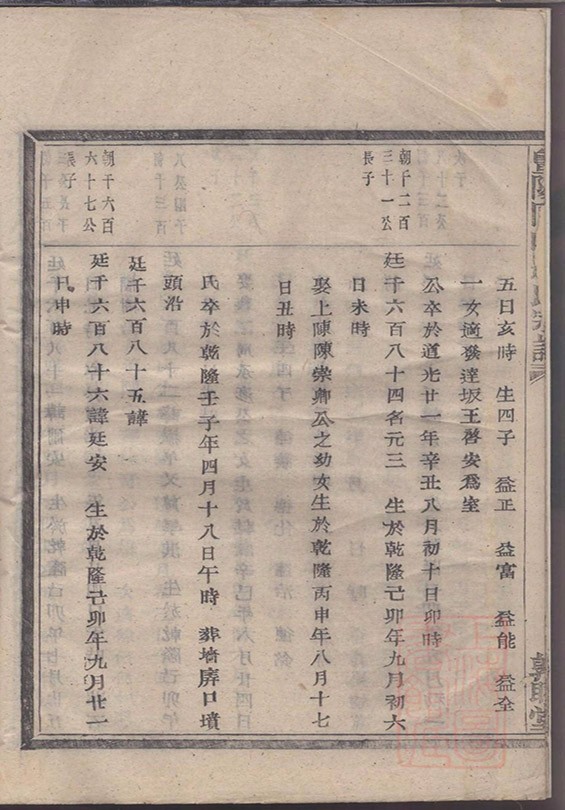 五日亥時　生四子　益正　益富　益能　益全
一女適發達坂王啓安爲室
公卒於道光廿一年辛丑八月初十日卯時
朝千二百
三十一公
長子
廷千六百八十四名元三　生於乾隆己卯年九月初六
日未時
娶上陳陳崇卿公之幼女生於乾隆丙申年八月十七
日丑時
氏卒於乾隆壬子年四月十八日午時　葬墻屏口墳
頭沿
廷千六百八十五諱
朝千六百
六十七公
長子
廷千六百八十六諱廷安　生於乾隆己卯年九月廿一
日申時
敦睦堂